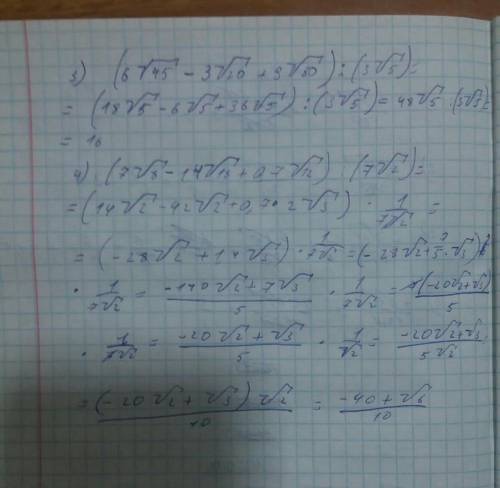 3) (6√45 - 3√20 + 9√80) : (3√5) =
= (18√5 - 6√5 + 36√5) : (3√5) = 48√5 : (3√5) =
= 16
4) (7√8 - 14√18 + 0,7√12) : (7√2) =
= (14√2 - 42√2 + 0,7·2√3) · 1/7√2 =
= (-28√2 + 1,4√3) · 1/7√2 = (-28√2 + 7/5 · √3) ·
· 1/7√2 = -140√2 + 7√3/5 · 1/7√2 = 7(-20√2 + √3)/5
· 1/7√2 = -20√2 + √3/5 · 1/√2 = -20√2 + √3/5√2
= (-20√2 + √3)√2/10 = -40 + √6/10